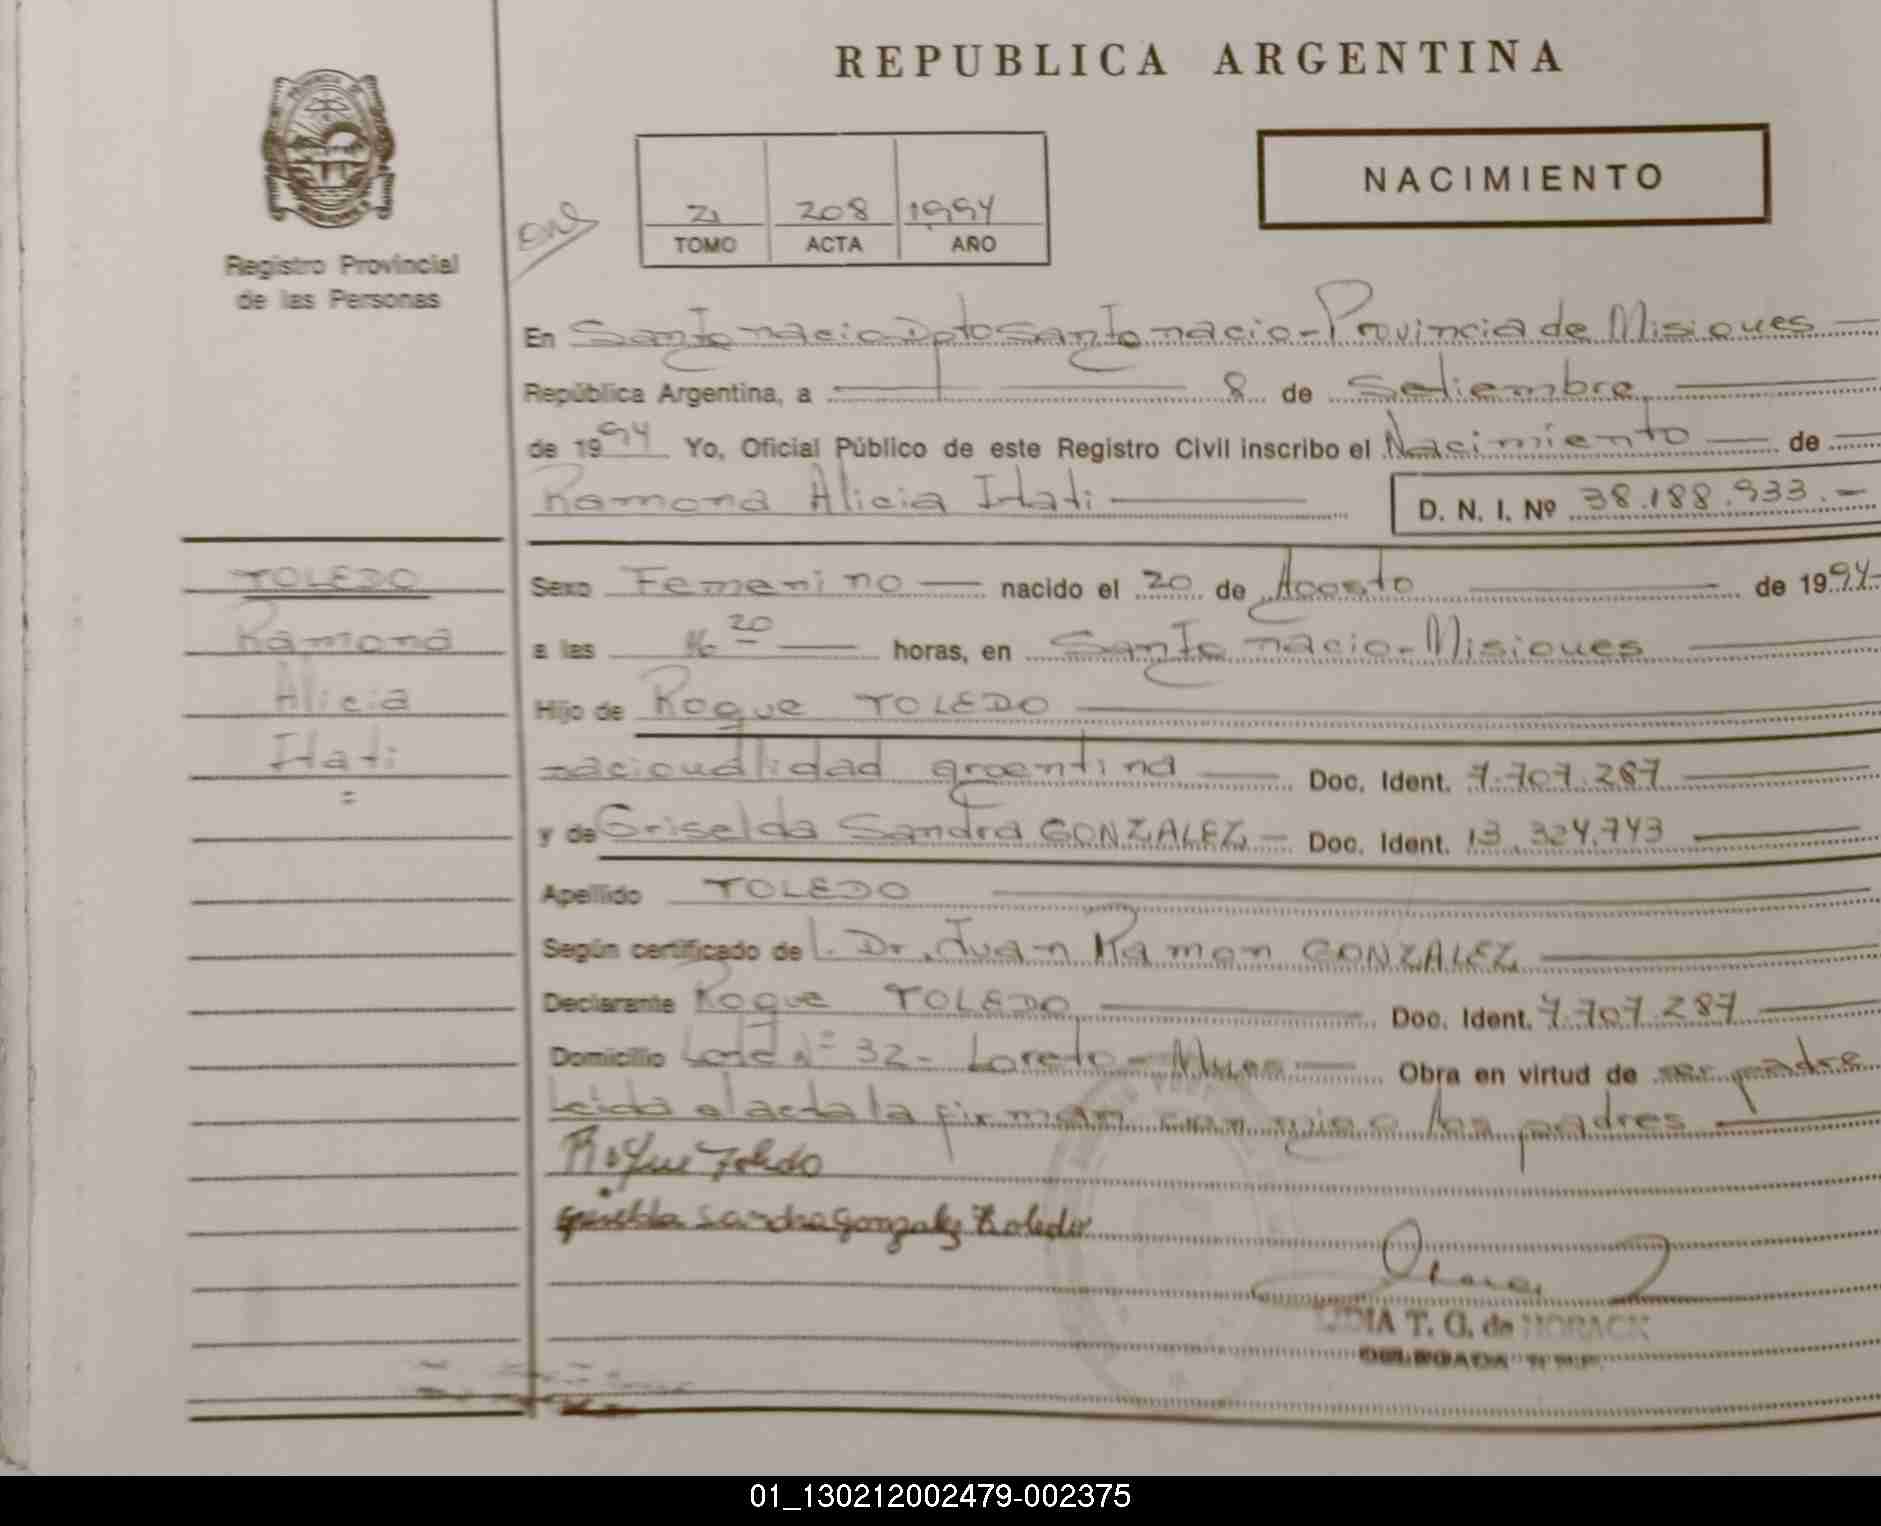 REPUBLICA ARGENTINA
Registro Provincial
de las Personas
208 1994
TOMO ACTA AÑO
NACIMIENTO
En San Ignacio Dpto San Ignacio - Provincia de Misiones
República Argentina, a 8 de Setiembre
de 1994 Yo, Oficial Público de este Registro Civil inscribo el Nacimiento de
Ramona Alicia Itati D. N. I. Nº 38.188.933.-
TOLEDO
Ramona
Alicia
Itati
=
Sexo Femenino nacido el 20 de Agosto de 1994-
a las 16 20 horas, en San Ignacio - Misiones
Hijo de Roque TOLEDO
nacionalidad argentina Doc. Ident. 7.707.287
y de Griselda Sandra GONZALEZ - Doc. Ident. 13.324.743
Apellido TOLEDO
Según certificado de l. Dr. Juan Ramon GONZALEZ
Declarante Roque TOLEDO Doc. Ident. 7.707.287
Domicilio Lote Nº 32 - Loreto - Mnes Obra en virtud de ser padre
Leida el acta la firman conmigo los padres
Roque Toledo
Griselda Sandra Gonzalez Toledo
LIDIA T. G. de HORACK
DELEGADA R.P.P.
01_130212002479-002375